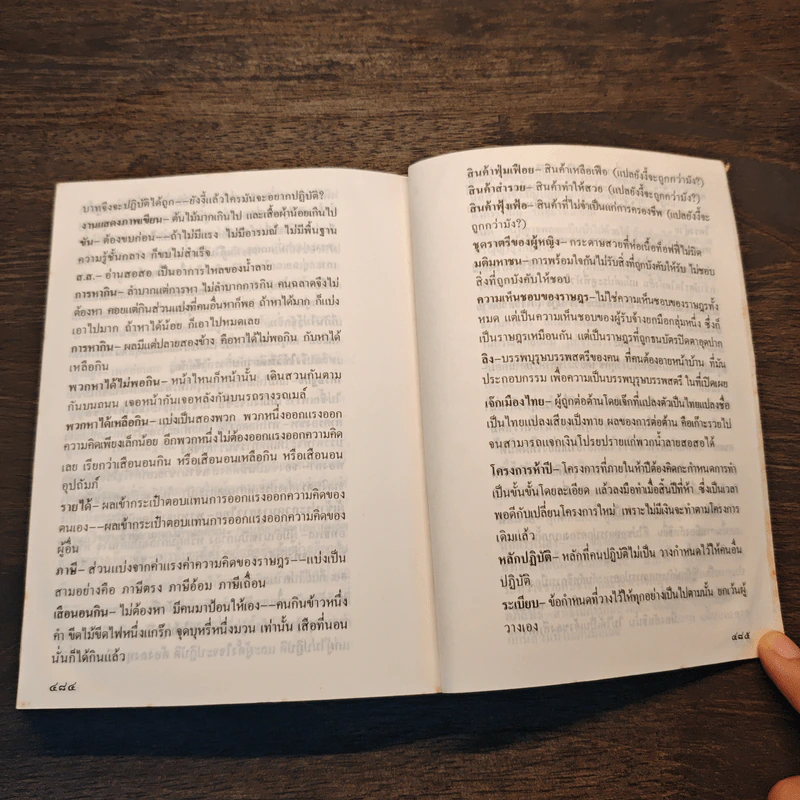 บาทจึงจะปฏิบัติได้ถูก--ยังงี้แล้วใครมันจะอยากปฏิบัติ?
งานแสดงภาพเขียน- ต้นไม้มากเกินไป และเสื้อผ้าน้อยเกินไป
ขัน- ต้องขบก่อน--ถ้าไม่มีแรง ไม่มีอารมณ์ ไม่มีพื้นฐาน
ความรู้ชั้นกลาง ก็ขบไม่สำเร็จ
ส.ส.- อ่านสอสอ เป็นอาการไหลของน้ำลาย
การหากิน- ลำบากแต่การหา ไม่ลำบากการกิน คนฉลาดจึงไม่
ต้องหา คอยแต่กินส่วนแบ่งที่คนอื่นหาก็พอ ถ้าหาได้มาก ก็แบ่ง
เอาไปมาก ถ้าหาได้น้อย ก็เอาไปหมดเลย
การหากิน- ผลมีแต่ปลายสองข้าง คือหาได้ไม่พอกิน กับหาได้
เหลือกิน
พวกหาได้ไม่พอกิน- หน้าไหนก็หน้านั้น เดินสวนกันตาม
กันบนถนน เจอหน้ากันเจอหลังกันบนรถรางรถเมล์
พวกหาได้เหลือกิน- แบ่งเป็นสองพวก พวกหนึ่งออกแรงออก
ความคิดเพียงเล็กน้อย อีกพวกหนึ่งไม่ต้องออกแรงออกความคิด
เลย เรียกว่าเสือนอนกิน หรือเสือนอนเหลือกิน หรือเสือนอน
อุปถัมภ์
รายได้- ผลเข้ากระเป๋าตอบแทนการออกแรงออกความคิดของ
ตนเอง--ผลเข้ากระเป๋าตอบแทนการออกแรงออกความคิดของ
ผู้อื่น
ภาษี- ส่วนแบ่งจากค่าแรงค่าความคิดของราษฎร--แบ่งเป็น
สามอย่างคือ ภาษีตรง ภาษีอ้อม ภาษีเถื่อน
เสือนอนกิน- ไม่ต้องหา มีคนมาป้อนให้เอง--คนกินข้าวหนึ่ง
คำ ขีดไม้ขีดไฟหนึ่งแกร๊ก จุดบุหรี่หนึ่งมวน เท่านั้น เสือที่นอน
นั่นก็ได้กินแล้ว
๔๘๔
สินค้าฟุ่มเฟือย- สินค้าเหลือเฟือ (แปลยังงี้จะถูกกว่ามัง?)
สินค้าสำรวย- สินค้าทำให้สวย (แปลยังงี้จะถูกกว่ามัง?)
สินค้าฟุ้งเฟ้อ- สินค้าที่ไม่จำเป็นแก่การครองชีพ (แปลยังงี้จะ
ถูกกว่ามัง?)
ชุดราตรีของผู้หญิง- กระดาษสวยที่ห่อเนื้อท็อฟฟี่ไม่ปิด
มติมหาชน- การพร้อมใจกันไม่รับสิ่งที่ถูกบังคับให้รับ ไม่ชอบ
สิ่งที่ถูกบังคับให้ชอบ
ความเห็นชอบของราษฎร- ไม่ใช้ความเห็นชอบของราษฎรทั้ง
หมด แต่เป็นความเห็นชอบของผู้รับจ้างยกมือกลุ่มหนึ่ง ซึ่งก็
เป็นราษฎรเหมือนกัน แต่เป็นราษฎรที่ถูกธนบัตรปิดตาอุดปาก
ลิง- บรรพบุรุษบรรพสตรีของคน ที่คนต้องอายหน้าบ้าน ที่มัน
ประกอบกรรม เพื่อความเป็นบรรพบุรุษบรรพสตรี ในที่เปิดเผย
เจ๊กเมืองไทย- ผู้ถูกต่อต้านโดยเจ๊กที่แปลงตัวเป็นไทยแปลงชื่อ
เป็นไทยแปลงเสียงเป็งทาย ผลของการต่อต้าน คือเก๊าะรวยไป
จนสามารถแจกเงินโปรยปรายแก่พวกน้ำลายสอสอได้
โครงการห้าปี- โครงการที่ภายในห้าปีต้องคิดกะกำหนดการทำ
เป็นขั้นขั้นโดยละเอียด แล้วลงมือทำเมื่อสิ้นปีที่ห้า ซึ่งเป็นเวลา
พอดีกับเปลี่ยนโครงการใหม่ เพราะไม่มีเงินจะทำตามโครงการ
เดิมแล้ว
หลักปฏิบัติ- หลักที่คนปฏิบัติไม่เป็น วางกำหนดไว้ให้คนอื่น
ปฏิบัติ
ระเบียบ- ข้อกำหนดที่วางไว้ให้ทุกอย่างเป็นไปตามนั้น ยกเว้นผู้
วางเอง
๔๘๕